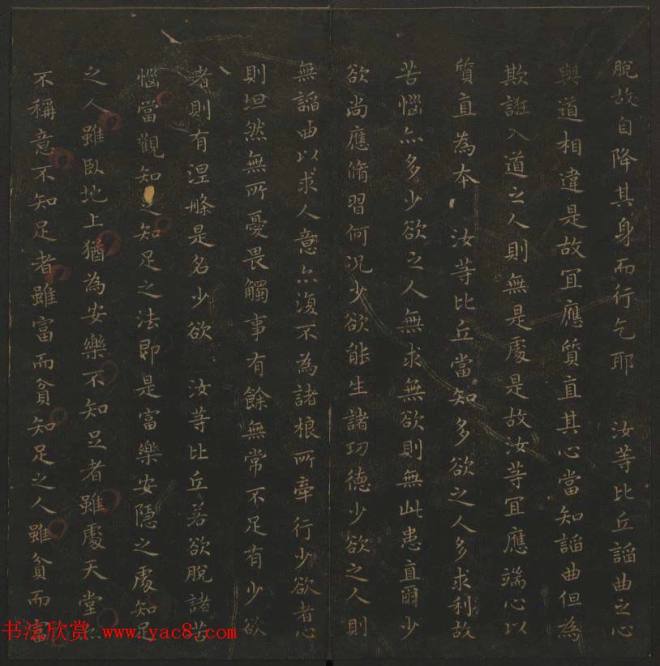 脫故自降其身而行乞耶 汝等比丘諂曲之心
與道相違是故宜應質直其心當知諂曲但為
欺誑入道之人則無是處是故汝等宜應端心以
質直為本 汝等比丘當知多欲之人多求利故
苦惱亦多少欲之人無求無欲則無此患直爾少
欲尚應脩習何況少欲能生諸功德少欲之人則
無諂曲以求人意亦復不為諸根所牽行少欲者心
則坦然無所憂畏觸事有餘無常不足有少欲
者則有涅槃是名少欲 汝等比丘若欲脫諸苦
惱當觀知足知足之法即是富樂安隱之處知足
之人雖臥地上猶為安樂不知足者雖處天堂亦
不稱意不知足者雖富而貧知足之人雖貧而富
书法欣赏:www.yac8.com